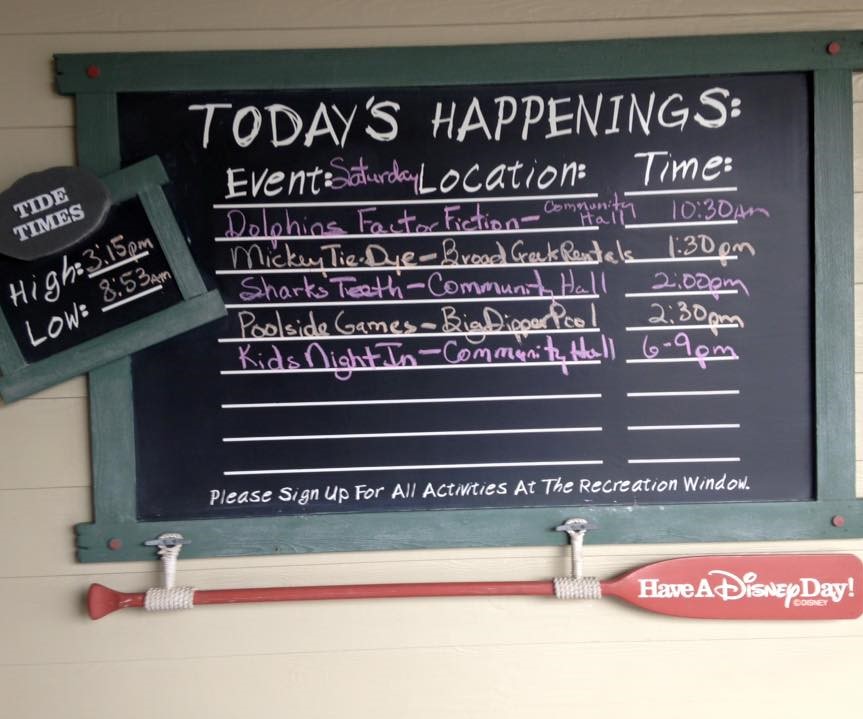 TODAY'S HAPPENINGS:
Event: Saturday Location: Time:
Dolphins Fact or Fiction - Community Hall 10:30am
Mickey Tie-Dye - Broad Creek Rentals 1:30pm
Sharks Teeth - Community Hall 2:00pm
Poolside Games - Big Dipper Pool 2:30pm
Kids Night In - Community Hall 6-9pm
Please Sign Up For All Activities At The Recreation Window.
TIDE
TIMES
High: 3:15pm
Low: 8:53am
Have A Disney Day!
©DISNEY